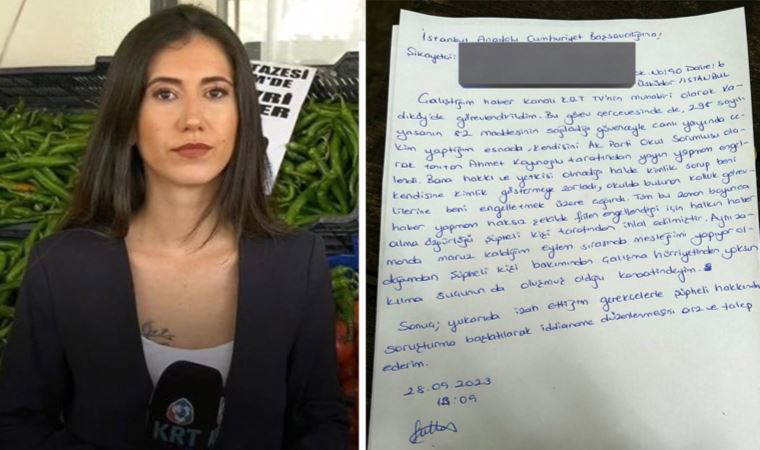 TAZESİ
M'DE
KRT
İstanbul Anadolu Cumhuriyet Başsavcılığına;
Şikayetçi:
No:90 Daire:6
Üsküdar / İSTANBUL
Çalıştığım haber kanalı KRT TV'nin muhabiri olarak Ka-
dıköy'de görevlendirildim. Bu görev çerçevesinde de, 298 sayılı
yasanın 82 maddesinin sağladığı güvenceyle canlı yayında çe-
kim yaptığım esnada, kendisini Ak Parti Okul Sorumlusu ola-
rak tanıtan Ahmet tarafından yayın yapmam engel-
lendi. Bana hakkı ve yetkisi olmadığı halde kimlik sorup beni
kendisine kimlik göstermeye zorladı, okulda bulunan kolluk görev-
lilerine beni engelletmek üzere çağırdı. Tüm bu zaman boyunca
haber yapmam haksız şekilde fiilen engellendiği için halkın haber
alma özgürlüğü şüpheli kişi tarafından ihlal edilmiştir. Aynı za-
manda maruz kaldığım eylem sırasında mesleğimi yapıyor ol-
duğumdan şüpheli kişi bakımından çalışma hürriyetinden yoksun
kılma suçunun da oluşmuş olduğu kanaatindeyim.
Sonuç; yukarıda izah ettiğim gerekçelerle şüpheli hakkında
soruşturma başlatılarak iddianame düzenlenmesini arz ve talep
ederim.
28.05.2023
:09